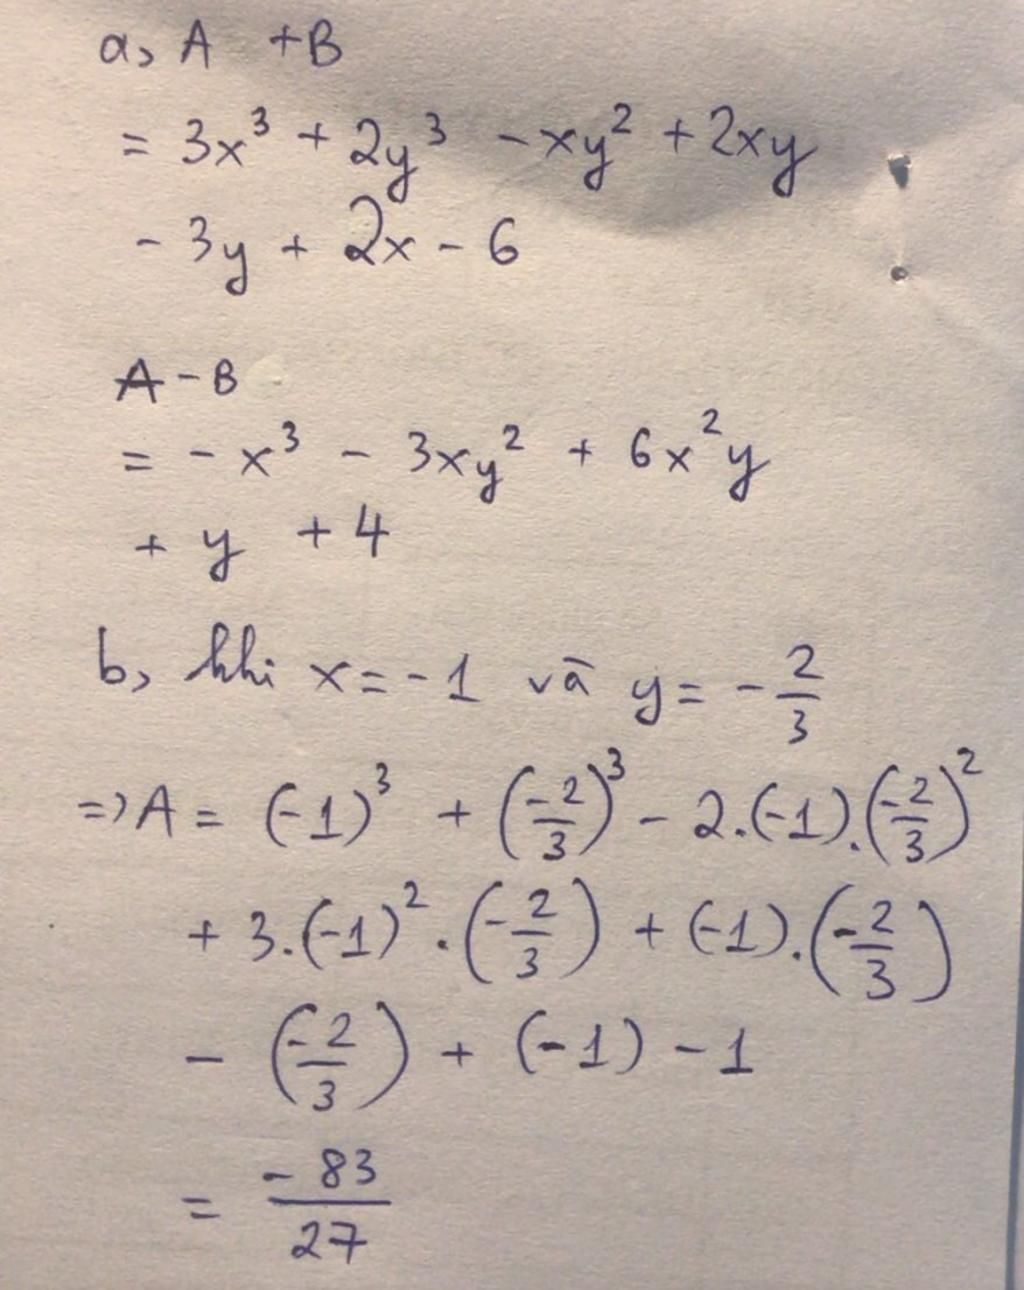 a, A + B
= 3x³ + 2y³ - xy² + 2xy
- 3y + 2x - 6
A - B
= - x³ - 3xy² + 6x²y
+ y + 4
b, khi x = - 1 và y = - 2/3
=> A = (-1)³ + (-2/3)³ - 2.(-1).(-2/3)²
+ 3.(-1)².(-2/3) + (-1).(-2/3)
- (-2/3) + (-1) - 1
= -83/27